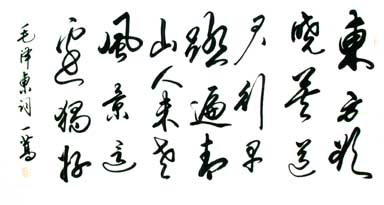 東方欲
晓莫道
君行早
踏遍青
山人未老
風景這
邊獨好
毛泽東词一